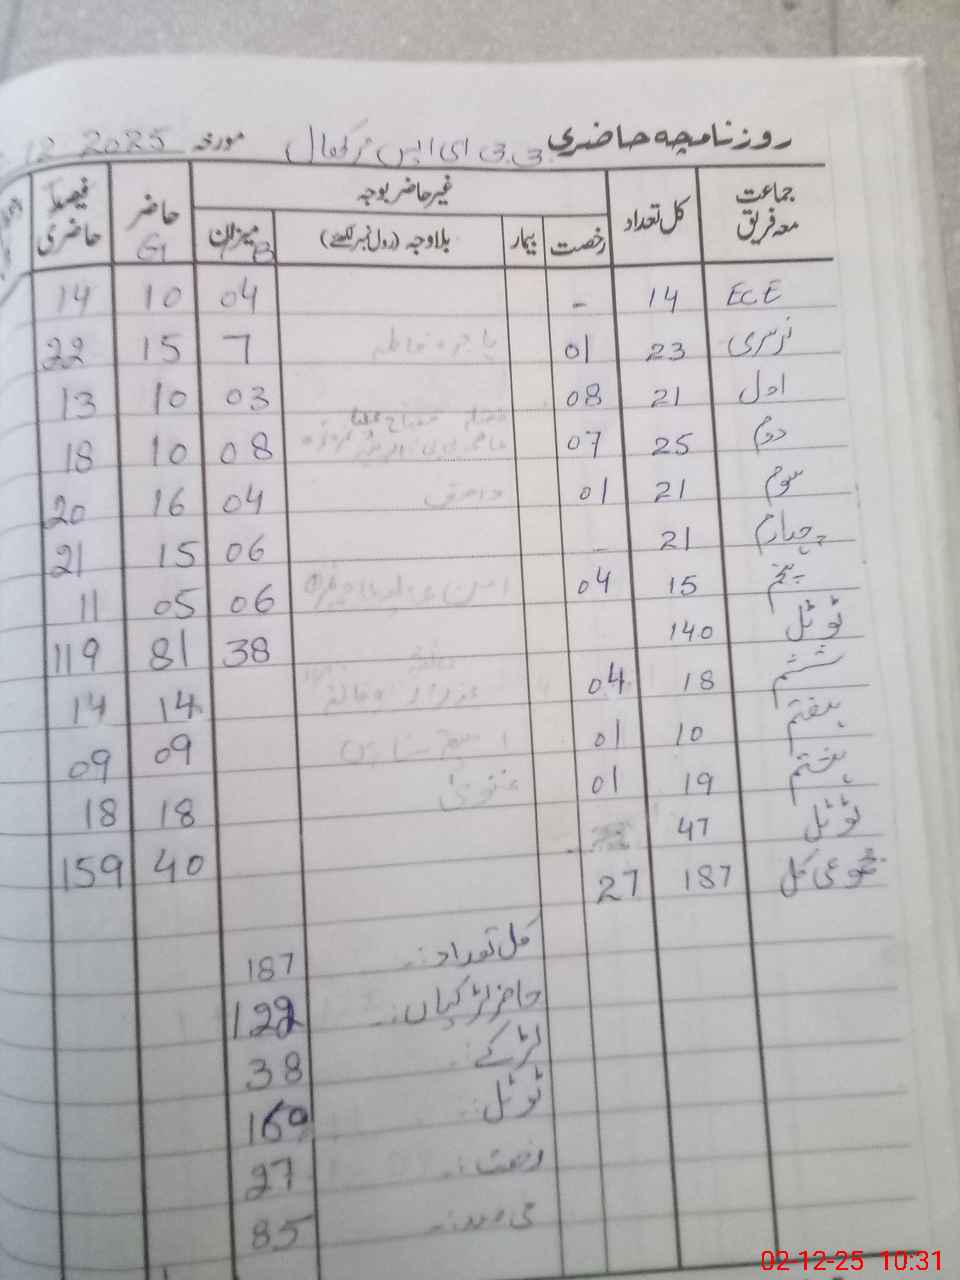 روزنامچہ حاضری جی جی ای ایس رکھال مورخہ 12 2025
جماعت معہ فریق کل تعداد غیر حاضر بوجہ حاضر فیصد حاضری
رخصت بیمار بلاوجہ (رول نمبر لکھئے) میزان B G
ECE 14 - 04 10 14
نرسری 23 01 7 15 22
اول 21 08 03 10 13
دوم 25 07 08 10 18
سوم 21 01 04 16 20
چہارم 21 - 06 15 21
پنجم 15 04 06 05 11
ٹوٹل 140 38 81 119
ششم 18 04 14 14
ہفتم 10 01 09 09
ہشتم 19 01 18 18
ٹوٹل 47
مجموعی کل 187 27 40 159
کل تعداد:- 187
حاضر لڑکیاں:- 122
لڑکے:- 38
ٹوٹل:- 160
رخصت:- 27
فی صد:- 85
02-12-25 10:31